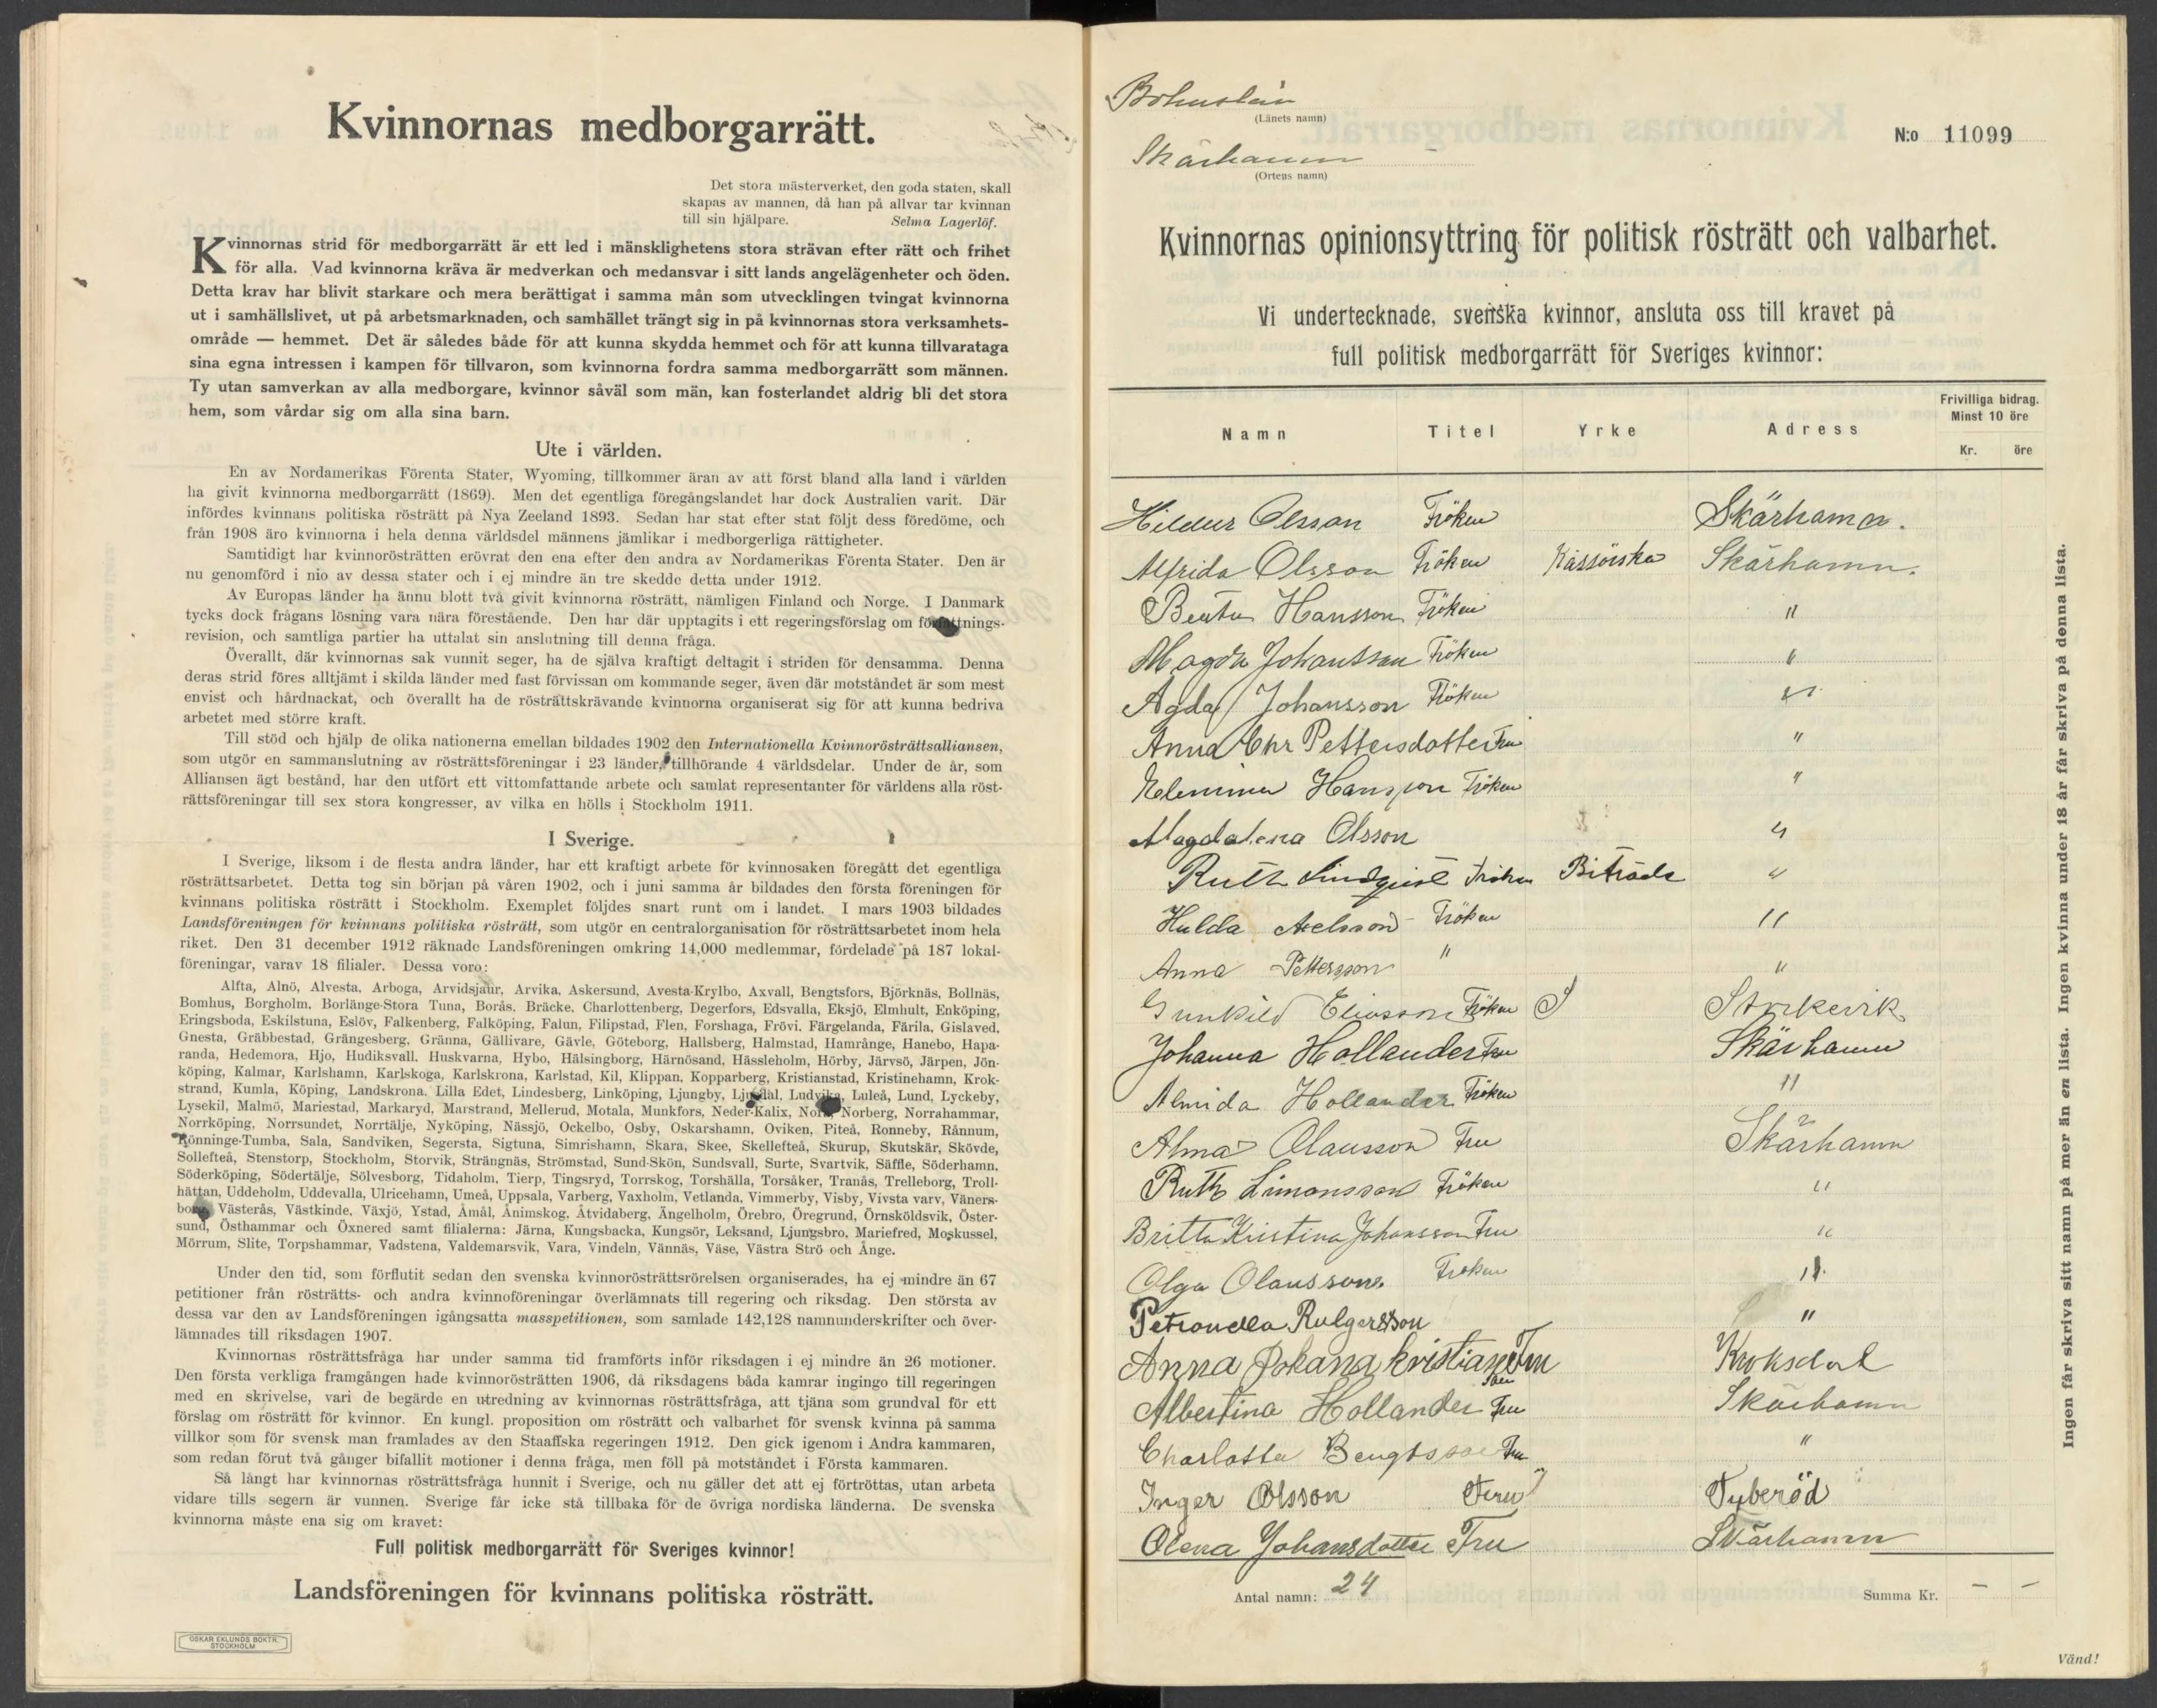 Kvinnornas medborgarrätt.
Det stora mästerverket, den goda staten, skall
skapas av mannen, då han på allvar tar kvinnan
till sin hjälpare. Selma Lagerlöf.
Kvinnornas strid för medborgarrätt är ett led i mänsklighetens stora strävan efter rätt och frihet
för alla. Vad kvinnorna kräva är medverkan och medansvar i sitt lands angelägenheter och öden.
Detta krav har blivit starkare och mera berättigat i samma mån som utvecklingen tvingat kvinnorna
ut i samhällslivet, ut på arbetsmarknaden, och samhället trängt sig in på kvinnornas stora verksamhets-
område — hemmet. Det är således både för att kunna skydda hemmet och för att kunna tillvarataga
sina egna intressen i kampen för tillvaron, som kvinnorna fordra samma medborgarrätt som männen.
Ty utan samverkan av alla medborgare, kvinnor såväl som män, kan fosterlandet aldrig bli det stora
hem, som vårdar sig om alla sina barn.
Ute i världen.
En av Nordamerikas Förenta Stater, Wyoming, tillkommer äran av att först bland alla land i världen
ha givit kvinnorna medborgarrätt (1869). Men det egentliga föregångslandet har dock Australien varit. Där
infördes kvinnans politiska rösträtt på Nya Zeeland 1893. Sedan har stat efter stat följt dess föredöme, och
från 1908 äro kvinnorna i hela denna världsdel männens jämlikar i medborgerliga rättigheter.
Samtidigt har kvinnorösträtten erövrat den ena efter den andra av Nordamerikas Förenta Stater. Den är
nu genomförd i nio av dessa stater och i ej mindre än tre skedde detta under 1912.
Av Europas länder ha ännu blott två givit kvinnorna rösträtt, nämligen Finland och Norge. I Danmark
tycks dock frågans lösning vara nära förestående. Den har där upptagits i ett regeringsförslag om författnings-
revision, och samtliga partier ha uttalat sin anslutning till denna fråga.
Överallt, där kvinnornas sak vunnit seger, ha de själva kraftigt deltagit i striden för densamma. Denna
deras strid föres alltjämt i skilda länder med fast förvissan om kommande seger, även där motståndet är som mest
envist och hårdnackat, och överallt ha de rösträttskrävande kvinnorna organiserat sig för att kunna bedriva
arbetet med större kraft.
Till stöd och hjälp de olika nationerna emellan bildades 1902 den Internationella Kvinnorösträttsalliansen,
som utgör en sammanslutning av rösträttsföreningar i 23 länder, tillhörande 4 världsdelar. Under de år, som
Alliansen ägt bestånd, har den utfört ett vittomfattande arbete och samlat representanter för världens alla röst-
rättsföreningar till sex stora kongresser, av vilka en hölls i Stockholm 1911.
I Sverige.
I Sverige, liksom i de flesta andra länder, har ett kraftigt arbete för kvinnosaken föregått det egentliga
rösträttsarbetet. Detta tog sin början på våren 1902, och i juni samma år bildades den första föreningen för
kvinnans politiska rösträtt i Stockholm. Exemplet följdes snart runt om i landet. I mars 1903 bildades
Landsföreningen för kvinnans politiska rösträtt, som utgör en centralorganisation för rösträttsarbetet inom hela
riket. Den 31 december 1912 räknade Landsföreningen omkring 14,000 medlemmar, fördelade på 187 lokal-
föreningar, varav 18 filialer. Dessa voro:
Alfta, Alnö, Alvesta, Arboga, Arvidsjaur, Arvika, Askersund, Avesta-Krylbo, Axvall, Bengtsfors, Björknäs, Bollnäs,
Bomhus, Borgholm, Borlänge-Stora Tuna, Borås, Bräcke, Charlottenberg, Degerfors, Edsvalla, Eksjö, Elmhult, Enköping,
Eringsboda, Eskilstuna, Eslöv, Falkenberg, Falköping, Falun, Filipstad, Flen, Forshaga, Frövi, Färgelanda, Färila, Gislaved,
Gnesta, Gräbbestad, Grängesberg, Gränna, Gällivare, Gävle, Göteborg, Hallsberg, Halmstad, Hamrånge, Hanebo, Hapa-
randa, Hedemora, Hjo, Hudiksvall, Huskvarna, Hybo, Hälsingborg, Härnösand, Hässleholm, Hörby, Järvsö, Järpen, Jön-
köping, Kalmar, Karlshamn, Karlskoga, Karlskrona, Karlstad, Kil, Klippan, Kopparberg, Kristianstad, Kristinehamn, Krok-
strand, Kumla, Köping, Landskrona, Lilla Edet, Lindesberg, Linköping, Ljungby, Ljusdal, Ludvika, Luleå, Lund, Lyckeby,
Lysekil, Malmö, Mariestad, Markaryd, Marstrand, Mellerud, Motala, Munkfors, Neder-Kalix, Norberg, Norrahammar,
Norrköping, Norrsundet, Norrtälje, Nyköping, Nässjö, Ockelbo, Osby, Oskarshamn, Oviken, Piteå, Ronneby, Rånnum,
Rönninge-Tumba, Sala, Sandviken, Segersta, Sigtuna, Simrishamn, Skara, Skee, Skellefteå, Skurup, Skutskär, Skövde,
Sollefteå, Stenstorp, Stockholm, Storvik, Strängnäs, Strömstad, Sund-Skön, Sundsvall, Surte, Svartvik, Säffle, Söderhamn,
Söderköping, Södertälje, Sölvesborg, Tidaholm, Tierp, Tingsryd, Torrskog, Torshälla, Torsåker, Tranås, Trelleborg, Troll-
hättan, Uddeholm, Uddevalla, Ulricehamn, Umeå, Uppsala, Varberg, Vaxholm, Vetlanda, Vimmerby, Visby, Vivsta varv, Väners-
borg, Västerås, Västkinde, Växjö, Ystad, Åmål, Ånimskog, Åtvidaberg, Ängelholm, Örebro, Öregrund, Örnsköldsvik, Öster-
sund, Östhammar och Öxnered samt filialerna: Järna, Kungsbacka, Kungsör, Leksand, Ljungsbro, Mariefred, Moskussel,
Mörrum, Slite, Torpshammar, Vadstena, Valdemarsvik, Vara, Vindeln, Vännäs, Väse, Västra Strö och Ånge.
Under den tid, som förflutit sedan den svenska kvinnorösträttsrörelsen organiserades, ha ej mindre än 67
petitioner från rösträtts- och andra kvinnoföreningar överlämnats till regering och riksdag. Den största av
dessa var den av Landsföreningen igångsatta masspetitionen, som samlade 142,128 namnunderskrifter och över-
lämnades till riksdagen 1907.
Kvinnornas rösträttsfråga har under samma tid framförts inför riksdagen i ej mindre än 26 motioner.
Den första verkliga framgången hade kvinnorösträtten 1906, då riksdagens båda kamrar ingingo till regeringen
med en skrivelse, vari de begärde en utredning av kvinnornas rösträttsfråga, att tjäna som grundval för ett
förslag om rösträtt för kvinnor. En kungl. proposition om rösträtt och valbarhet för svensk kvinna på samma
villkor som för svensk man framlades av den Staaffska regeringen 1912. Den gick igenom i Andra kammaren,
som redan förut två gånger bifallit motioner i denna fråga, men föll på motståndet i Första kammaren.
Så långt har kvinnornas rösträttsfråga hunnit i Sverige, och nu gäller det att ej förtröttas, utan arbeta
vidare tills segern är vunnen. Sverige får icke stå tillbaka för de övriga nordiska länderna. De svenska
kvinnorna måste ena sig om kravet:
Full politisk medborgarrätt för Sveriges kvinnor!
Landsföreningen för kvinnans politiska rösträtt.
OSKAR EKLUNDS BOKTR.
STOCKHOLM
Bohuslän
(Länets namn)
N:o 11099
Skärhamn
(Ortens namn)
Kvinnornas opinionsyttring för politisk rösträtt och valbarhet.
Vi undertecknade, svenska kvinnor, ansluta oss till kravet på
full politisk medborgarrätt för Sveriges kvinnor:
Namn Titel Yrke Adress Frivilliga bidrag. Minst 10 öre
Kr. öre
Hildur Olsson Fröken Skärhamn.
Alfrida Olsson Fröken Kassörska Skärhamn.
Beata Hansson Fröken "
Magda Johansson Fröken "
Agda Johansson Fröken "
Anna Chr Pettersdotter Fru "
Hansson Fröken "
Magdalena Olsson "
Ruth Lindquist Fröken Biträde "
Hulda Axelsson Fröken "
Anna Pettersson " "
Gunhild Eliasson Fröken
Johanna Hollander Fru Skärhamn
Almida Hollander Fröken "
Alma Olausson Fru Skärhamn
Ruth Simonsson Fröken "
Britta Kristina Johansson Fru "
Olga Olausson Fröken "
Petronella Rutgersson "
Anna Johana kristiansson Fru Kroksdal
Albertina Hollander Fru Skärhamn
Charlotta Bengtsson Fru "
Inger Olsson Fru Tuberöd
Olena Johansdotter Fru Skärhamn
Antal namn: 24 Summa Kr. – –
Ingen får skriva sitt namn på mer än en lista. Ingen kvinna under 18 år får skriva på denna lista.
Vänd!